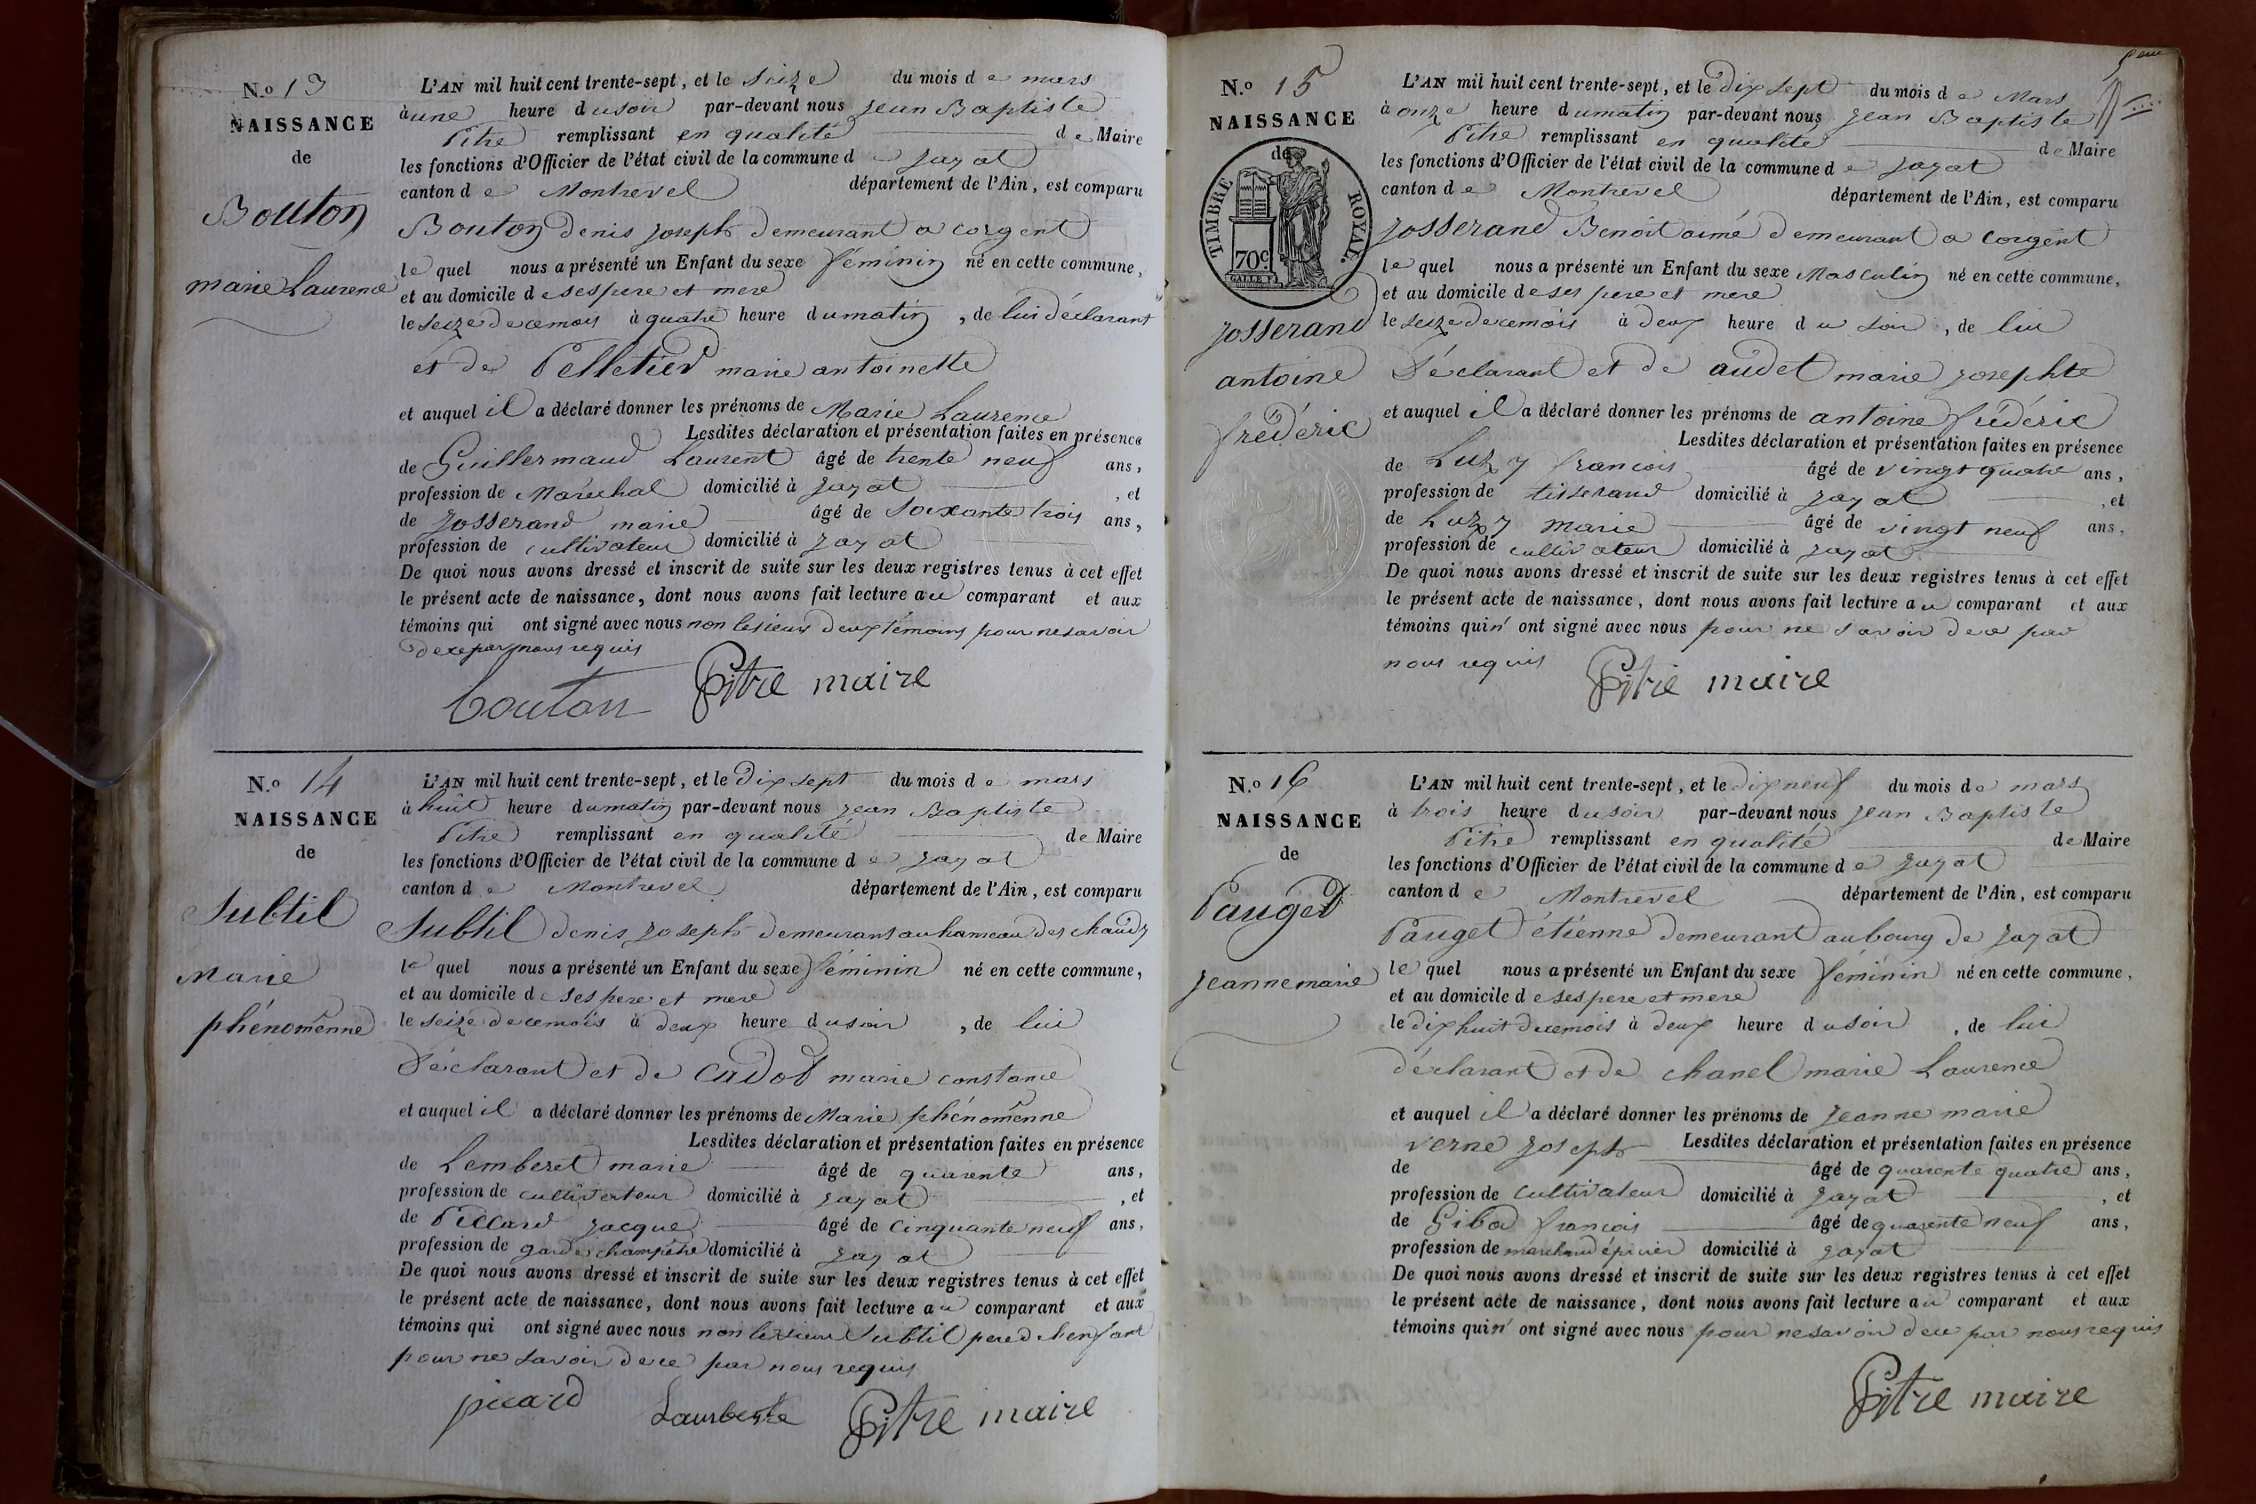 N.o 13
NAISSANCE
de
Bouton
marie Laurence
L'AN mil huit cent trente-sept, et le seize du mois de mars
à une heure du soir par-devant nous jean Baptiste
Pitre remplissant en qualité de Maire
les fonctions d'Officier de l'état civil de la commune de jayat
canton de Montrevel département de l'Ain, est comparu
Bouton denis joseph demeurant a corgent
lequel nous a présenté un Enfant du sexe féminin né en cette commune,
et au domicile de ses pere et mere
le seize de ce mois à quatre heure du matin, de lui déclarant
et de Pelletier marie antoinette
et auquel il a déclaré donner les prénoms de Marie Laurence
Lesdites déclaration et présentation faites en présence
de Guillermaud Laurent âgé de trente neuf ans,
profession de Maréchal domicilié à jayat, et
de josserand marie âgé de soixante trois ans,
profession de cultivateur domicilié à jayat
De quoi nous avons dressé et inscrit de suite sur les deux registres tenus à cet effet
le présent acte de naissance, dont nous avons fait lecture au comparant et aux
témoins qui ont signé avec nous non les sieurs deux témoins pour ne savoir
de ce par nous requis
bouton Pitre maire
N.o 14
NAISSANCE
de
Subtil
Marie
phénoménne
L'AN mil huit cent trente-sept, et le dix sept du mois de mars
à huit heure du matin par-devant nous jean Baptiste
Pitre remplissant en qualité de Maire
les fonctions d'Officier de l'état civil de la commune de jayat
canton de Montrevel département de l'Ain, est comparu
Subtil denis joseph demeurant au hameau des chaudy
lequel nous a présenté un Enfant du sexe féminin né en cette commune,
et au domicile de ses pere et mere
le seize de ce mois à deux heure du soir, de lui
déclarant et de Cadot marie constance
et auquel il a déclaré donner les prénoms de Marie phénoménne
Lesdites déclaration et présentation faites en présence
de Lemberet marie âgé de quarente ans,
profession de cultivateur domicilié à jayat, et
de Piccard jacque âgé de cinquante neuf ans,
profession de garde champêtre domicilié à jayat
De quoi nous avons dressé et inscrit de suite sur les deux registres tenus à cet effet
le présent acte de naissance, dont nous avons fait lecture au comparant et aux
témoins qui ont signé avec nous non le sieur Subtil pere de l'enfant
pour ne savoir de ce par nous requis
picard Pitre maire
N.o 15
NAISSANCE
de
TIMBRE ROYAL.
70c.
josserand
antoine
frédéric
L'AN mil huit cent trente-sept, et le dix sept du mois de Mars
à onze heure du matin par-devant nous jean Baptiste
Pitre remplissant en qualité de Maire
les fonctions d'Officier de l'état civil de la commune de jayat
canton de Montrevel département de l'Ain, est comparu
josserand Benoit aimé demeurant a corgent
lequel nous a présenté un Enfant du sexe Masculin né en cette commune,
et au domicile de ses pere et mere
le seize de ce mois à deux heure du soir, de lui
déclarant et de audet marie josephte
et auquel il a déclaré donner les prénoms de antoine frédéric
Lesdites déclaration et présentation faites en présence
de Luzy francois âgé de vingt quatre ans,
profession de tisserand domicilié à jayat, et
de Luzy marie âgé de vingt neuf ans,
profession de cultivateur domicilié à jayat
De quoi nous avons dressé et inscrit de suite sur les deux registres tenus à cet effet
le présent acte de naissance, dont nous avons fait lecture au comparant et aux
témoins qui n'ont signé avec nous pour ne savoir de ce par
nous requis Pitre maire
N.o 16
NAISSANCE
de
Pauget
jeanne marie
L'AN mil huit cent trente-sept, et le dix neuf du mois de mars
à trois heure du soir par-devant nous jean Baptiste
Pitre remplissant en qualité de Maire
les fonctions d'Officier de l'état civil de la commune de jayat
canton de Montrevel département de l'Ain, est comparu
Pauget étienne demeurant au bourg de jayat
lequel nous a présenté un Enfant du sexe féminin né en cette commune,
et au domicile de ses pere et mere
le dix huit de ce mois à deux heure du soir, de lui
déclarant et de chanel marie Laurence
et auquel il a déclaré donner les prénoms de jeanne marie
verne joseph Lesdites déclaration et présentation faites en présence
de âgé de quarente quatre ans,
profession de cultivateur domicilié à jayat, et
de Gibod francois âgé de quarente neuf ans,
profession de marchand épicier domicilié à jayat
De quoi nous avons dressé et inscrit de suite sur les deux registres tenus à cet effet
le présent acte de naissance, dont nous avons fait lecture au comparant et aux
témoins qui n'ont signé avec nous pour ne savoir de ce par nous requis
Pitre maire